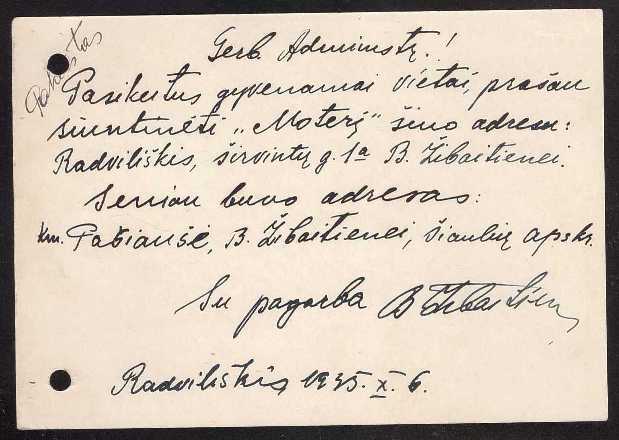 Gerb. Administr.!
Pasikeitus gyvenamai vietai, prašau
siuntinėti „Moterį" šiuo adresu:
Radviliškis, Širvintų g. 1a B. Žibaitienei.
Seniau buvo adresas:
km. Pašiaušė, B. Žibaitienei, Šiaulių apskr.
Su pagarba B Žibaitien
Radviliškis 1935. X. 6.